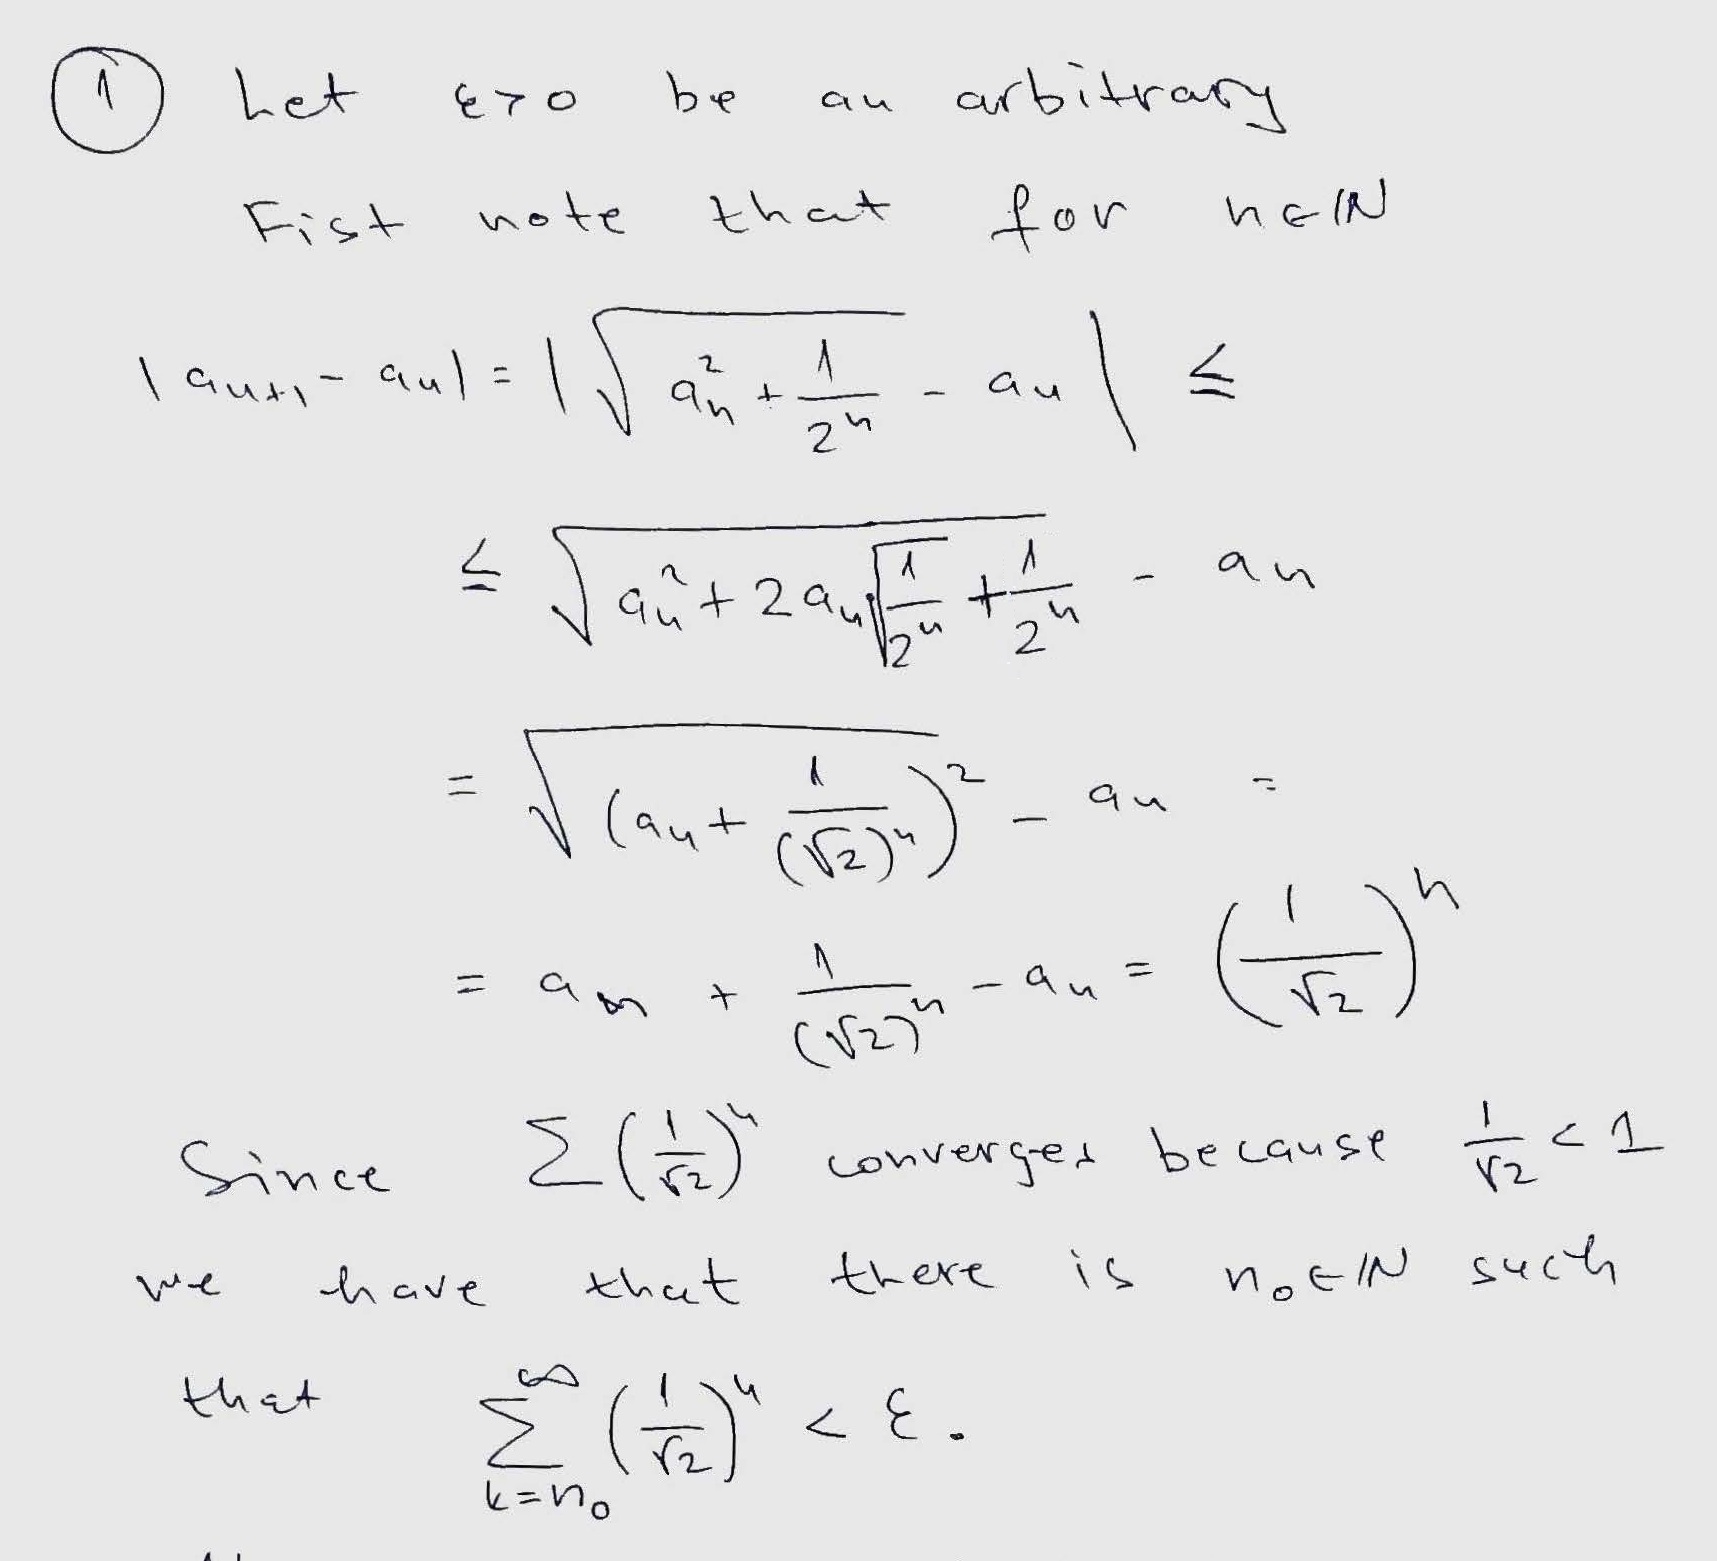 ① Let ε>0 be an arbitrary
Fist note that for n∈ℕ
|aₙ₊₁ - aₙ| = |√(aₙ² + 1/2ⁿ) - aₙ| ≤
≤ √(aₙ² + 2aₙ√(1/2ⁿ) + 1/2ⁿ) - aₙ
= √((aₙ + 1/(√2)ⁿ)²) - aₙ =
= aₙ + 1/(√2)ⁿ - aₙ = (1/√2)ⁿ
Since Σ(1/√2)ⁿ converges because 1/√2 < 1
we have that there is n₀∈ℕ such
that Σ_{k=n₀}^{∞} (1/√2)ⁿ < ε.